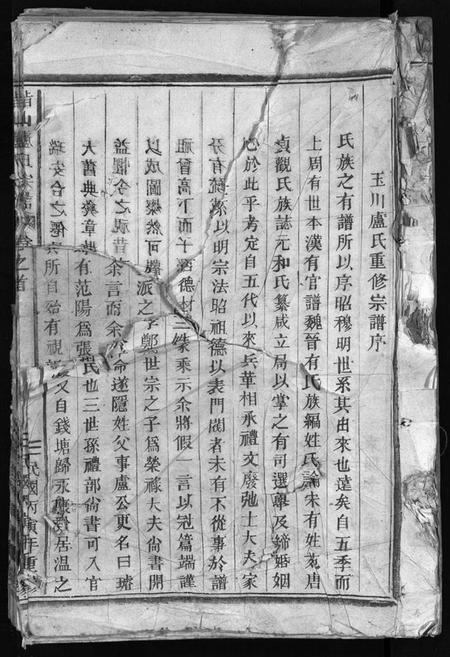 玉川盧氏重修宗譜序
氏族之有譜所以序昭穆明世系其由來也遠矣自五季而
上周有世本漢有官譜魏晉有氏族編姓氏論宋有姓苑唐
貞觀氏族誌元和氏纂咸立局以掌之有司選舉及締婚姻
必於此乎考定自五代以來兵華相承禮文廢弛士大夫家
分有統系以明宗法昭祖德以表門閥者未有不從事於譜
祖晉高下而子洒德材三條乘示余將假一言以冠篇端謹
以成圖燦然可派之子鄭世宗之子爲榮祿大夫尚書開
益慨今之視昔余言耶余命遂隱姓父事盧公更名曰瑃
大舊典彝章有范陽爲張氏也三世孫禮部尚書可入官
瑞安台之僊居所自始有視又自錢塘歸永居温之
青山盧氏宗譜卷之首
民國丙寅年重修